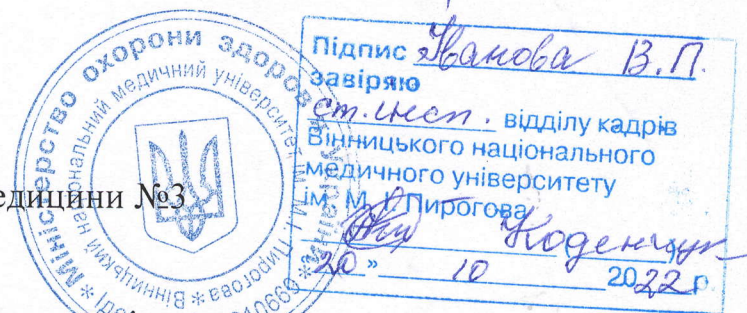 Міністерство охорони здоров
Вінницький національний медичний університет ім. М.І. Пирогова
едицини №3
Підпис Іванова В.П.
завіряю
ст. інсп. відділу кадрів
Вінницького національного
медичного університету
ім. М. І. Пирогова
Коденчук
20 » 10 2022 р.